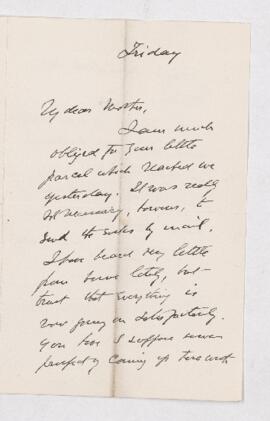 Friday
My dear Mother,
I am much
obliged for your little
parcel which reached me
yesterday. It was really
unnecessary, however, to
send the socks by mail.
I have heard very little
from home lately, but
trust that everything is
now going on satisfactorily.
You have I suppose
of coming up towards